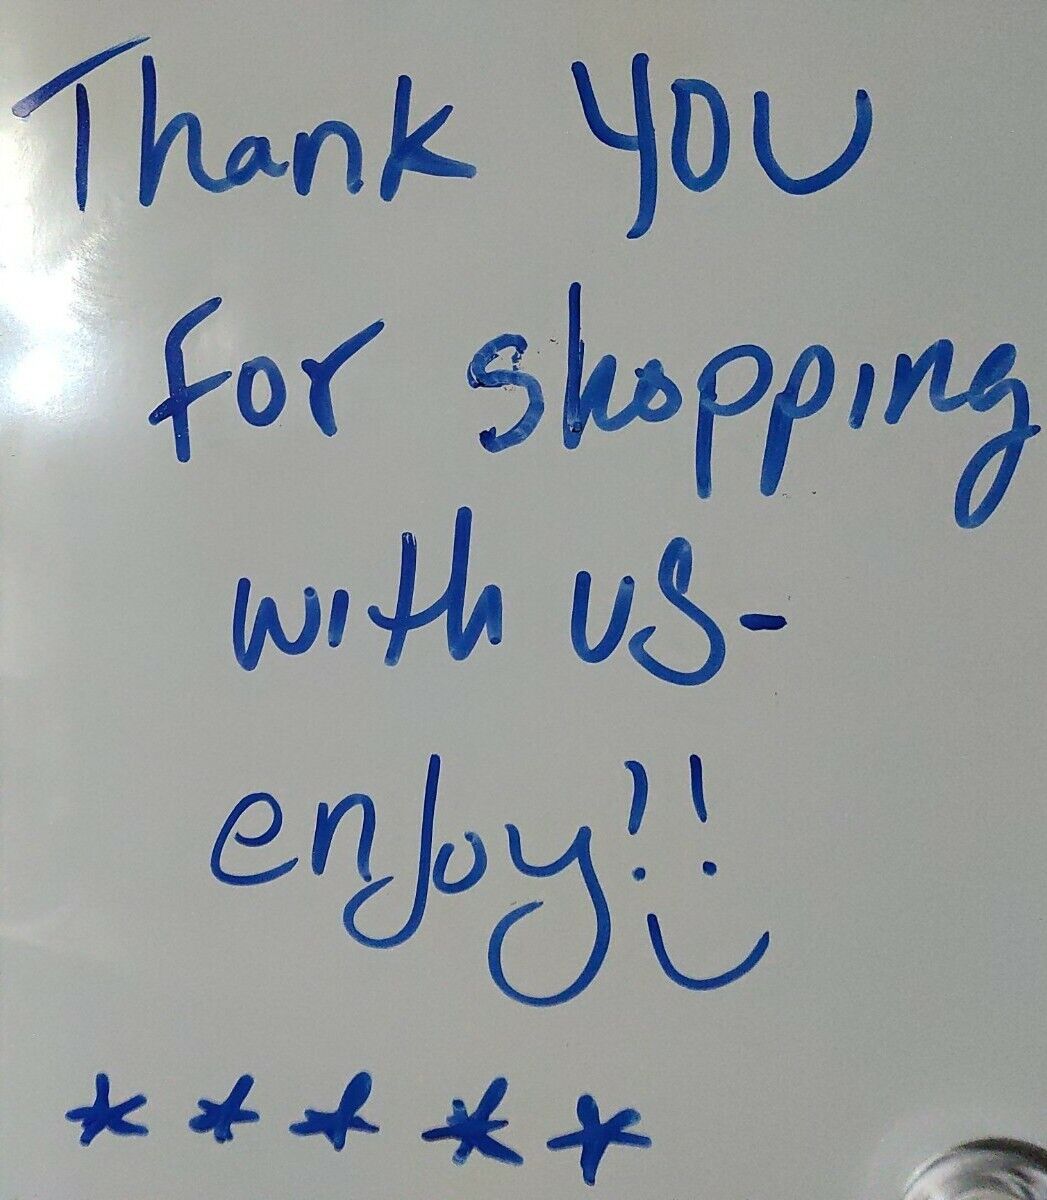 Thank you
for shopping
with us-
enjoy!!
*****